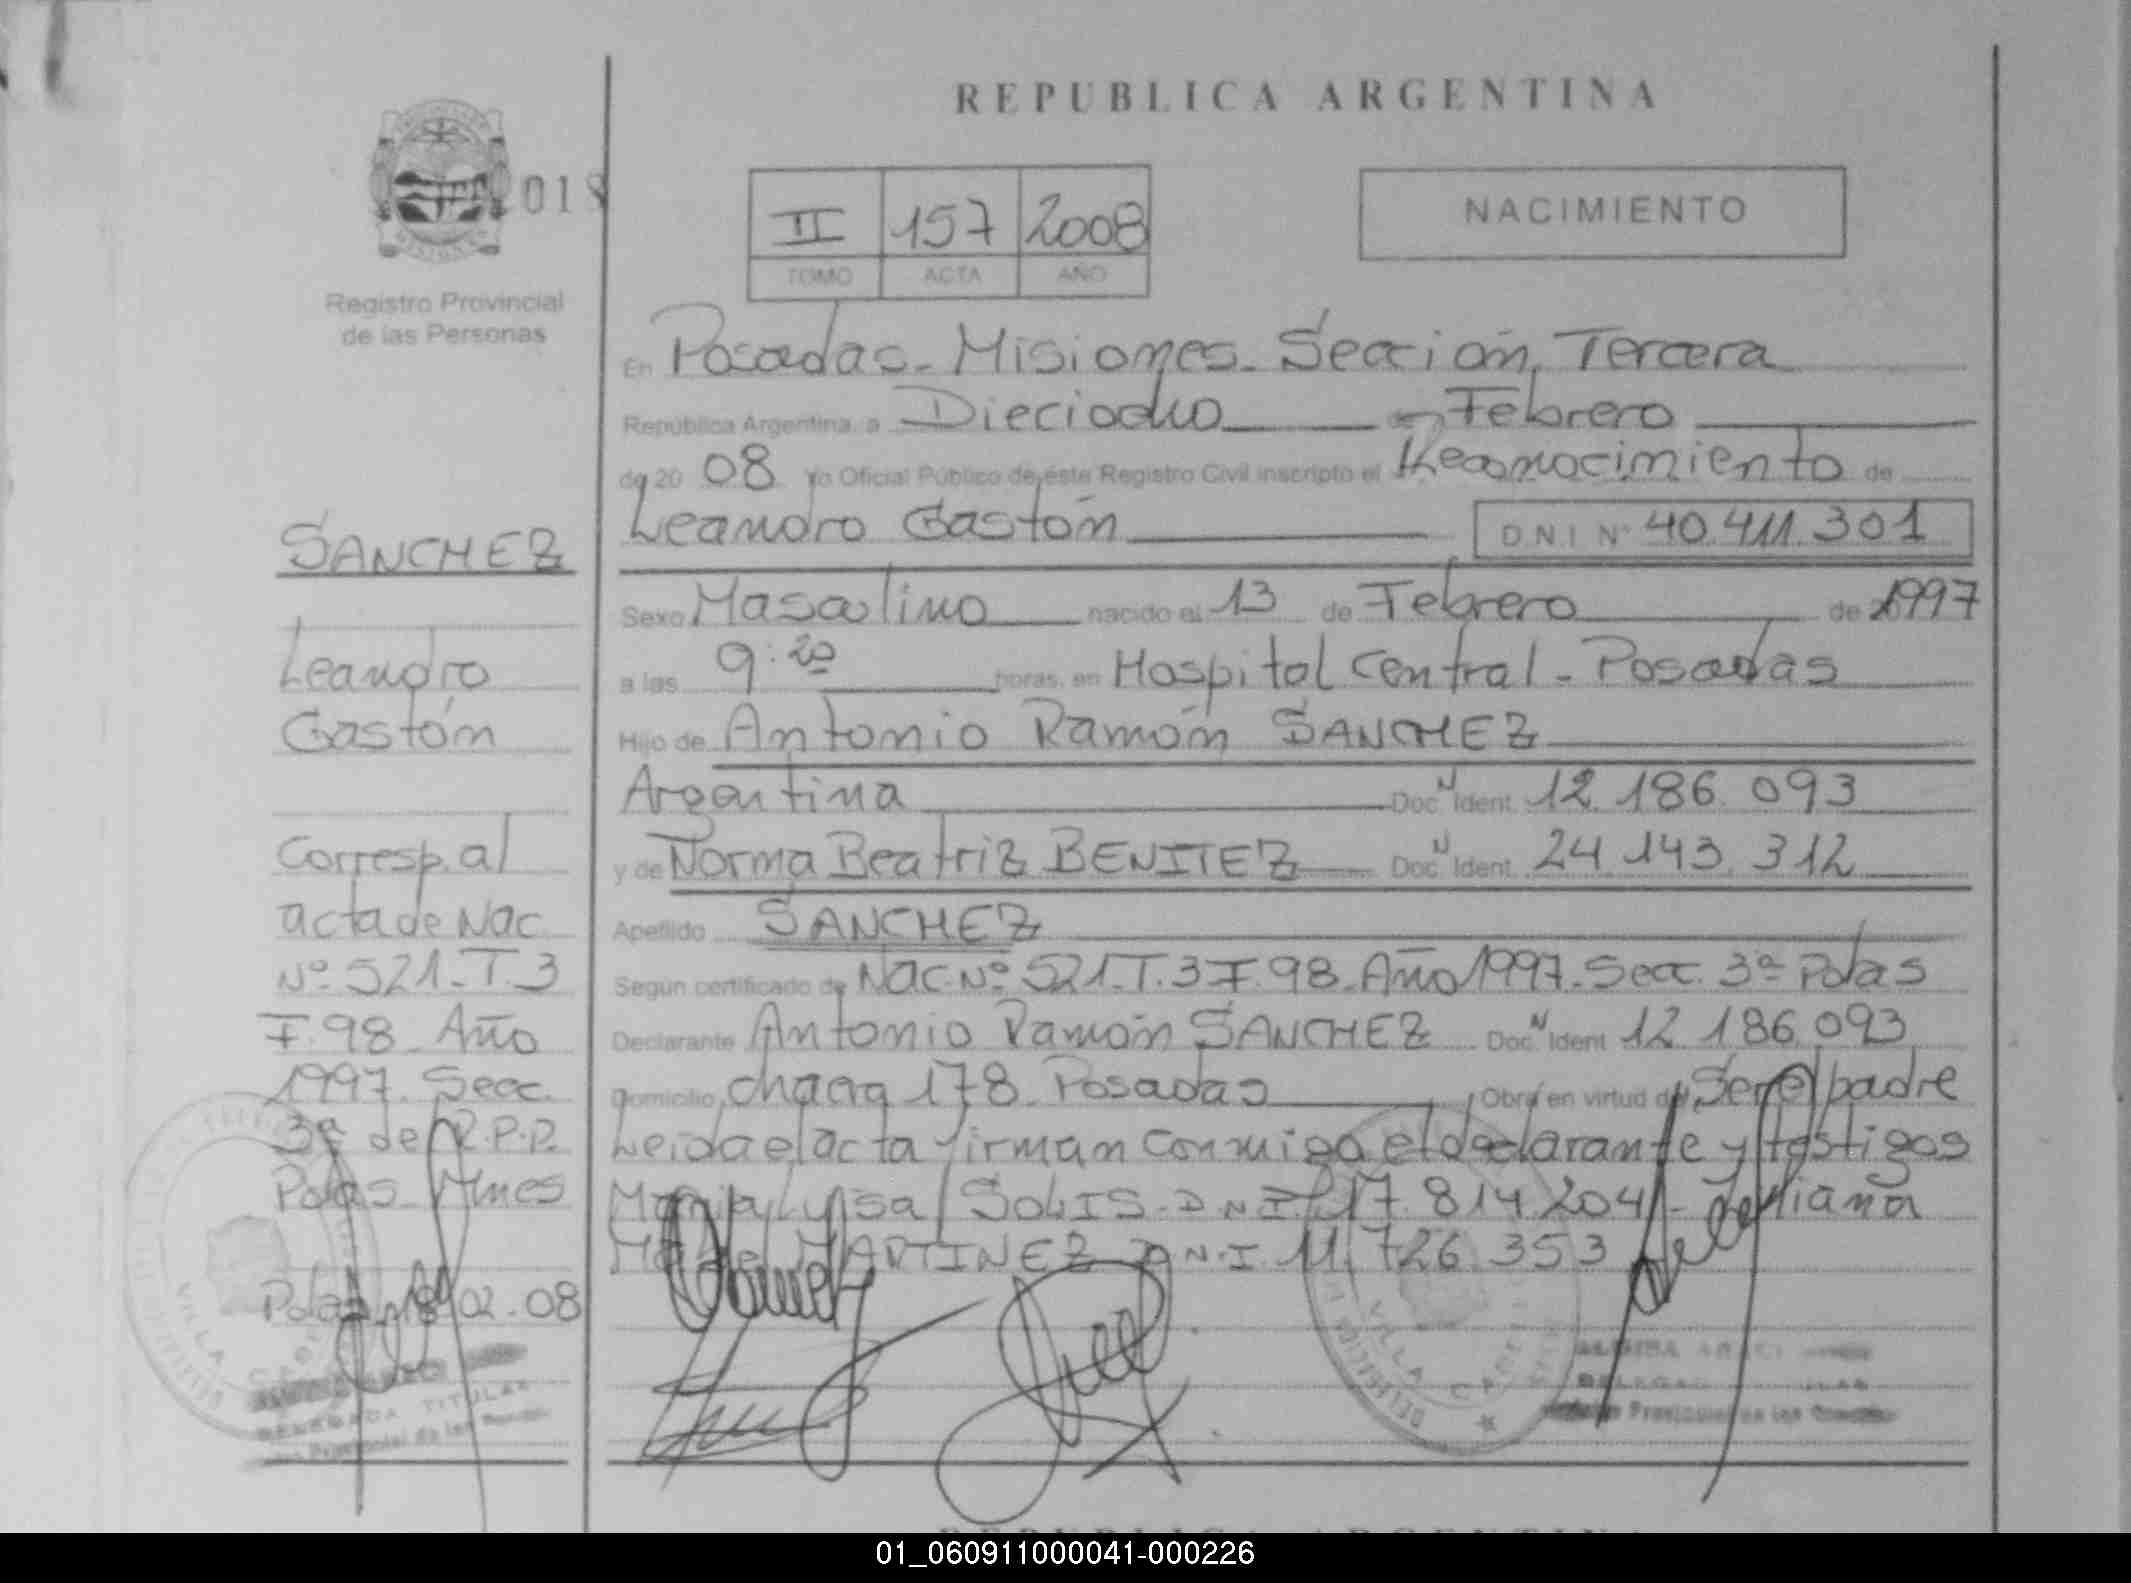 REPUBLICA ARGENTINA
018
II 157 2008
TOMO ACTA AÑO
NACIMIENTO
Registro Provincial
de las Personas
En Posadas - Misiones - Sección Tercera
República Argentina, a Dieciocho de Febrero
de 2008 Yo Oficial Público de éste Registro Civil inscripto el Reconocimiento de
Leandro Gastón DNI Nº 40.411.301
Sexo Masculino nacido el 13 de Febrero de 1997
a las 9:20 horas, en Hospital Central - Posadas
Hijo de Antonio Ramón SANCHEZ
Argentina Doc. Ident. 12.186.093
y de Norma Beatriz BENITEZ Doc. Ident. 24.143.312
Apellido SANCHEZ
Según certificado de Nac. Nº 521-T.3 F.98-Año 1997-Secc. 3ª Pdas
Declarante Antonio Ramón SANCHEZ Doc. Ident 12.186.093
Domicilio chacra 178 Posadas Obra en virtud de Ser el padre
Leida el acta firman conmigo el declarante y testigos
Maria Lyisa SOLIS - D.N.I. 17.814.204 -
MARTINEZ D.N.I. 11.726.353
SANCHEZ
Leandro
Gastón
Corresp. al
acta de Nac.
Nº 521-T.3
F.98 Año
1997 Secc.
3ª de R.P.P.
Pdas Mnes
Pdas 18-02-08
VILLA CABELLO
DELEGADA TITULAR
Provincial de las Personas
VILLA
DELEGACION
Provincial de las Personas
REPUBLICA ARGENTINA
01_060911000041-000226